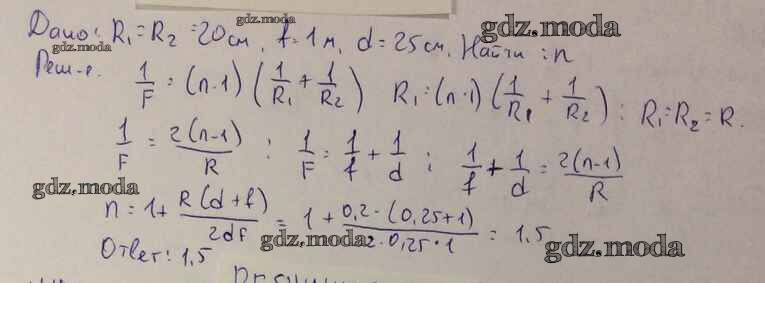 gdz.moda
gdz.moda
Дано: R₁ = R₂ = 20 см, f = 1 м, d = 25 см. Найти: n
gdz.moda
Реш-е. 1/F = (n-1) (1/R₁ + 1/R₂) R₁ = (n-1) (1/R₁ + 1/R₂); R₁ = R₂ = R.
1/F = 2(n-1)/R ; 1/F = 1/f + 1/d ; 1/f + 1/d = 2(n-1)/R
gdz.moda
n = 1 + R(d+f)/2df = 1 + 0,2·(0,25+1)/2·0,25·1 = 1,5
gdz.moda
gdz.moda
Ответ: 1,5